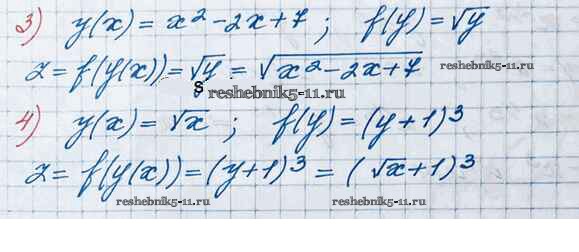 3) y(x) = x² - 2x + 7 ; f(y) = √y
z = f(y(x)) = √y = √(x² - 2x + 7)
reshebnik5-11.ru
8 reshebnik5-11.ru
4) y(x) = √x ; f(y) = (y+1)³
z = f(y(x)) = (y+1)³ = (√x+1)³
reshebnik5-11.ru reshebnik5-11.ru